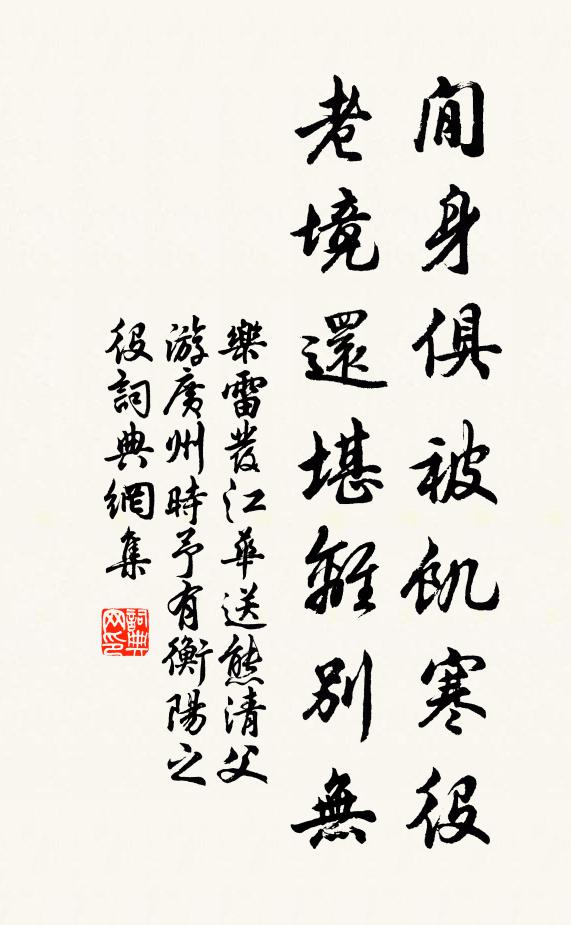 閒身俱被飢寒役
老境還堪離別無
樂雷發江華送熊清父
游廣州時予有衡陽之
役詞典網集
詞典
网印